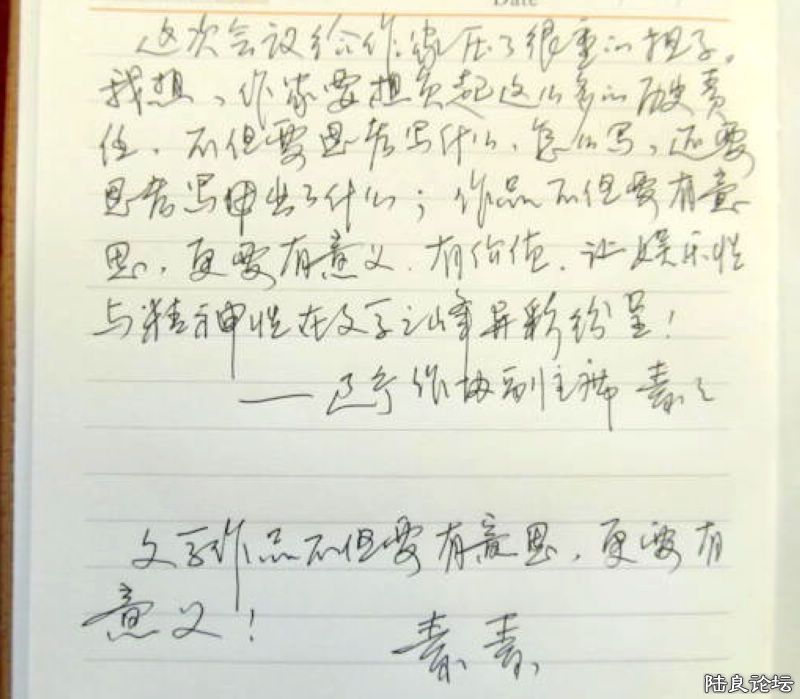 Date
这次会议给作家压了很重的担子。
我想，作家要担负起这么多的历史责
任，不但要思考写什么，怎么写，还要
思考写出了什么；作品不但要有意
思，更要有意义，有价值，让娱乐性
与精神性在文学之峰异彩纷呈！
——辽宁作协副主席 素素
文学作品不但要有意思，更要有
意义！
素素
陆良论坛